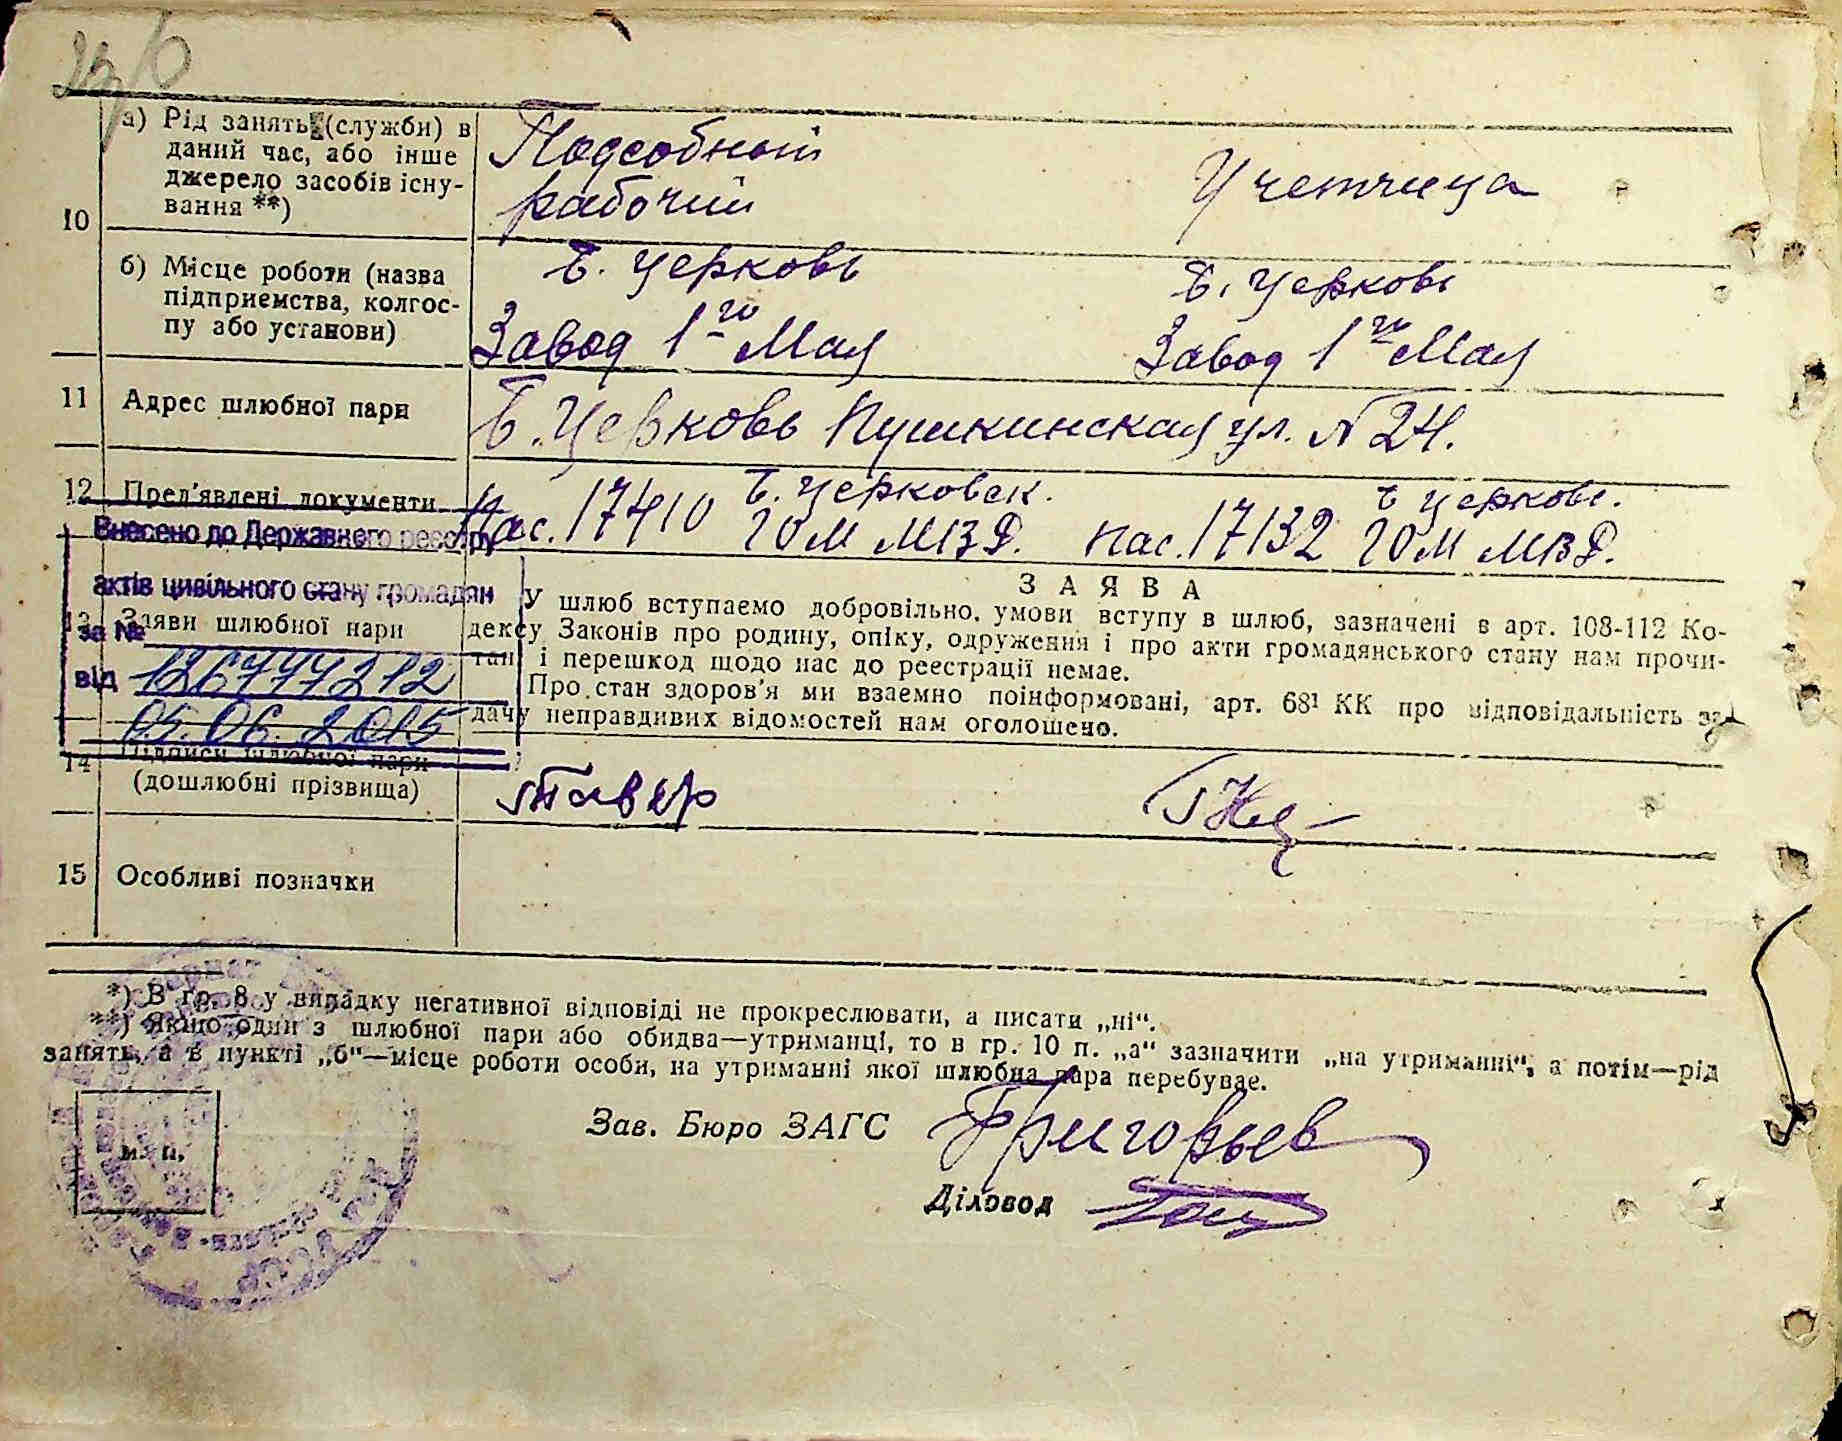 10
а) Рід занять (служби) в
даний час, або інше
джерело засобів існу-
вання **)
Подсобный
рабочий
Учетчица
б) Місце роботи (назва
підприємства, колгос-
пу або установи)
Б. Церковь
Завод 1го Мая
Б. Церковь
Завод 1го Мая
11
Адрес шлюбної пари
Б. Церковь Пушкинская ул. № 24.
12
Пред'явлені документи
Пас. 17410 Б. Церковск.
ГОМ МВД.
Пас. 17132 Б Церковс.
ГОМ МВД.
Внесено до Державного реєстру
актів цивільного стану громадян
за №
від 126777212
05.06.2015
13
Заяви шлюбної пари
ЗАЯВА
У шлюб вступаємо добровільно, умови вступу в шлюб, зазначені в арт. 108-112 Ко-
дексу Законів про родину, опіку, одруження і про акти громадянського стану нам прочи-
тані і перешкод щодо нас до реєстрації немає.
Про стан здоров'я ми взаємно поінформовані, арт. 68¹ КК про відповідальність за
дачу неправдивих відомостей нам оголошено.
14
Підписи шлюбної пари
(дошлюбні прізвища)
15
Особливі позначки
*) В гр. 8 у випадку негативної відповіді не прокреслювати, а писати „ні“.
**) Якщо один з шлюбної пари або обидва—утриманці, то в гр. 10 п. „а“ зазначити „на утриманні“, а потім—рід
занять, а в пункті „б“—місце роботи особи, на утриманні якої шлюбна пара перебуває.
м. п.
Зав. Бюро ЗАГС Григорьев
Діловод